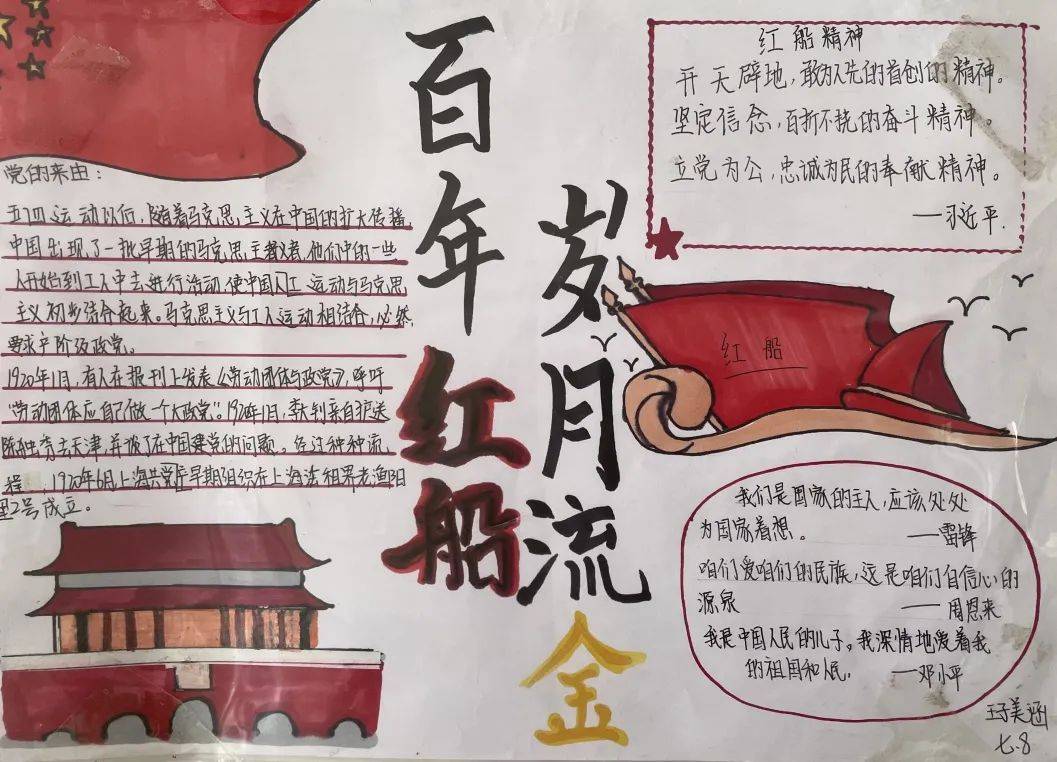 百年红船
岁月流金
党的来由:
五四运动以后,随着马克思主义在中国的扩大传播,
中国出现了一批早期的马克思主义者,他们中的一些
人开始到工人中去进行活动,使中国人工运动与马克思
主义初步结合起来。马克思主义与工人运动相结合,必然
要求产阶级政党。
1920年1月,有人在报刊上发表《劳动团体与政党》,呼吁
"劳动团体应自己做一个大政党"。1920年1月,李大钊亲自护送
陈独秀去天津,并谈了在中国建党的问题。经过种种流
程 1920年6月上海共党产早期组织在上海法租界老渔阳
里2号成立。
红船精神
开天辟地,敢为人先的首创的精神。
坚定信念,百折不挠的奋斗精神。
立党为公,忠诚为民的奉献精神。
—习近平.
红船
我们是国家的主人,应该处处
为国家着想。 —雷锋
咱们爱咱们的民族,这是咱们自信心的
源泉 —周恩来
我是中国人民的儿子。我深情地爱着我
的祖国和人民。 —邓小平
美涵
七.8